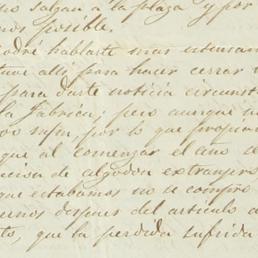 no salgan a la plaza y por
nos posible.
podré hablarte mas estensam
tuve alli para hacer cerrar
para darte noticia circunst
la Fabrica, pero aunque
por lo que propon
que al comenzar el año de
de algodon extrangero
que estabamos no se compro
despues del articulo
que la perdida sufrida